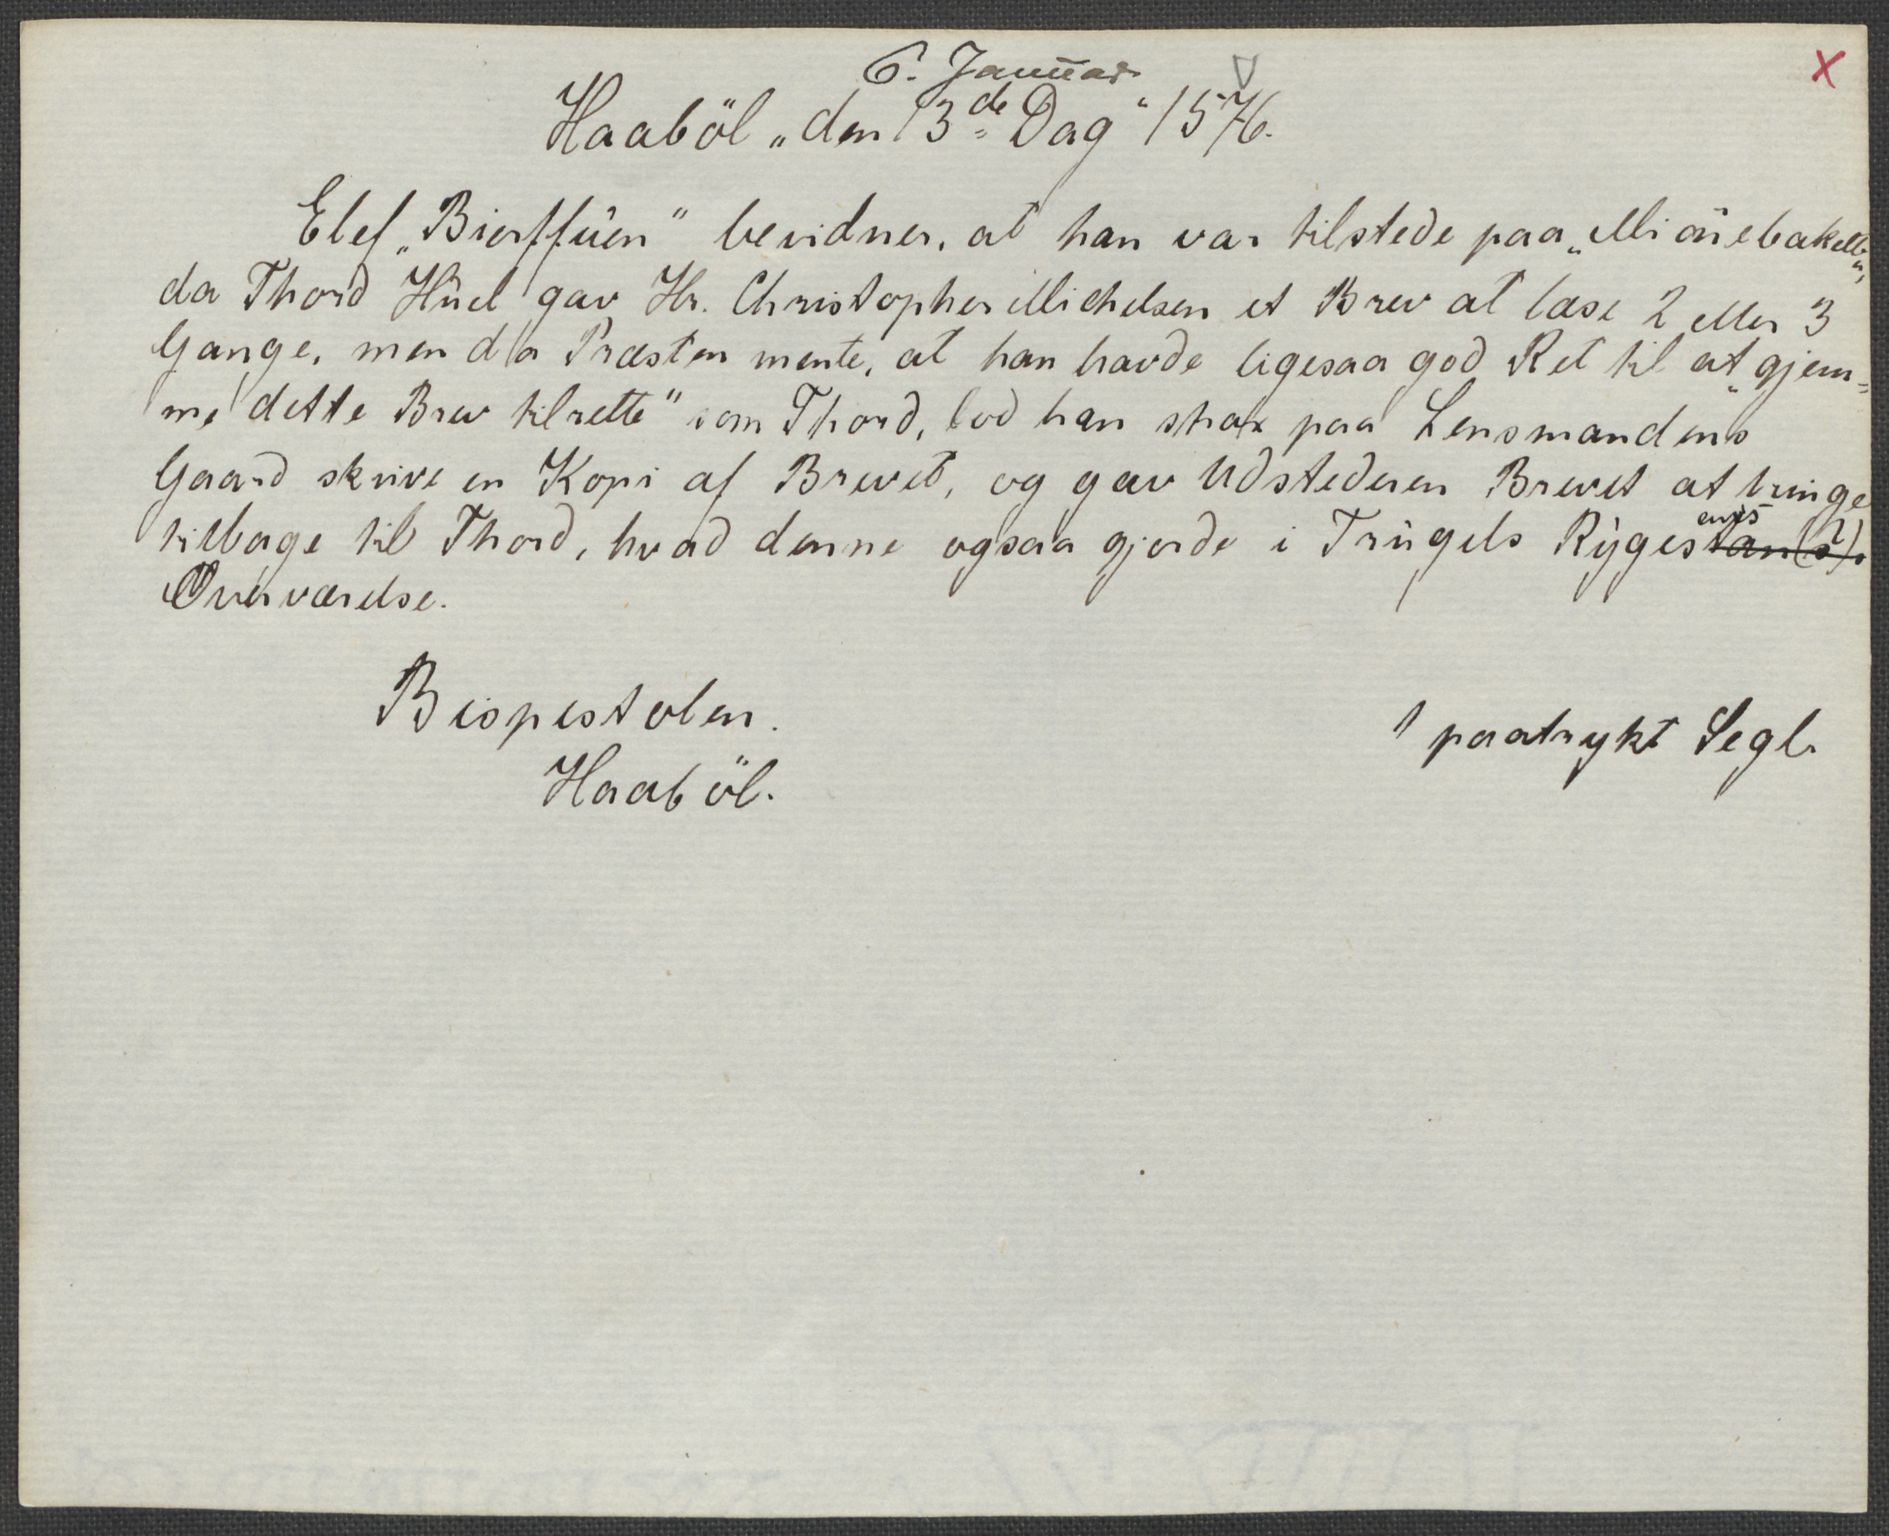 6. Januar
Haaböl „den 13de Dag“ 1576.
x
Elef „Bierffüen“ bevidner, at han var tilstede paa „Miönebakelb“,
da Thord Hüel gav Hr. Christopher Michelsen et Brev at læse 2 eller 3
Gange, men da Præsten mente, at han havde ligesaa god Ret til at „gjem=
me dette Brev tilrette“ som Thord, lod han strax paa Lensmandens
Gaard skrive en Kopi af Brevet, og gav Udstederen Brevet at bringe
tilbage til Thord, hvad denne ogsaa gjorde i Trügels Rÿges
Overværelse.
Bispestolen.
1 paatrykt Segl.
Haaböl.